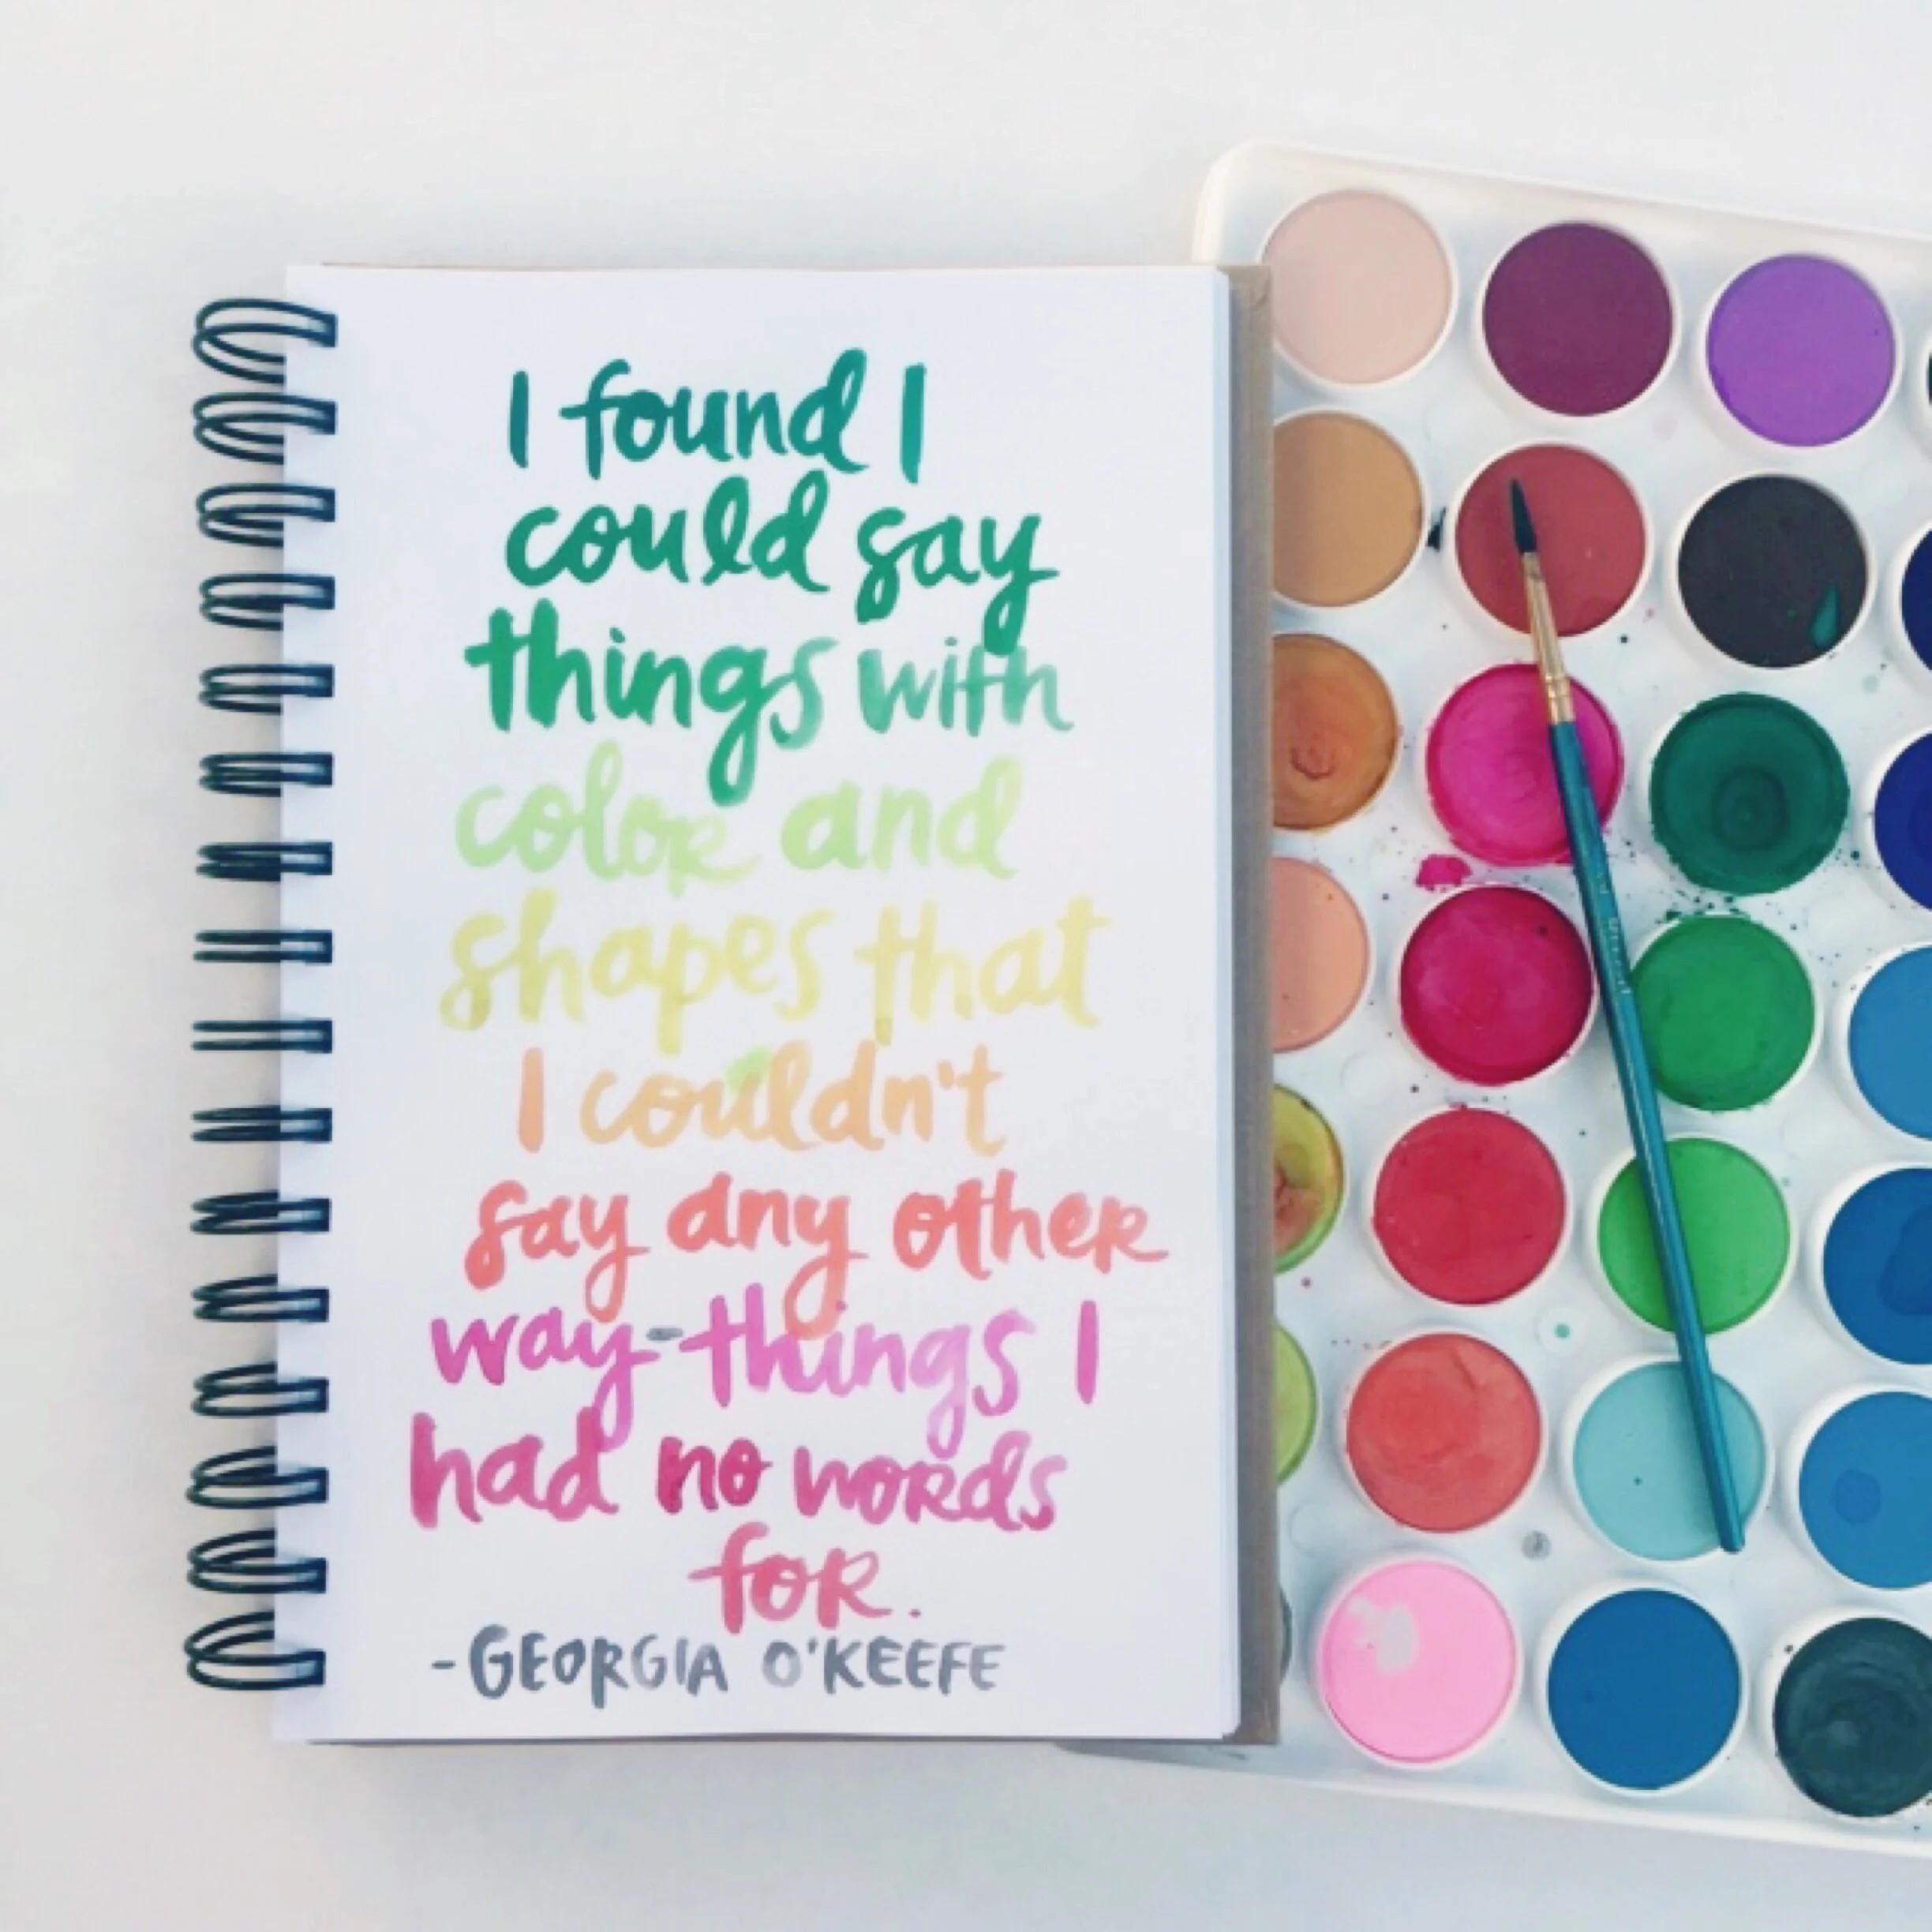 I found I
could say
things with
color and
shapes that
I couldn't
say any other
way-things I
had no words
for.
-GEORGIA O'KEEFE